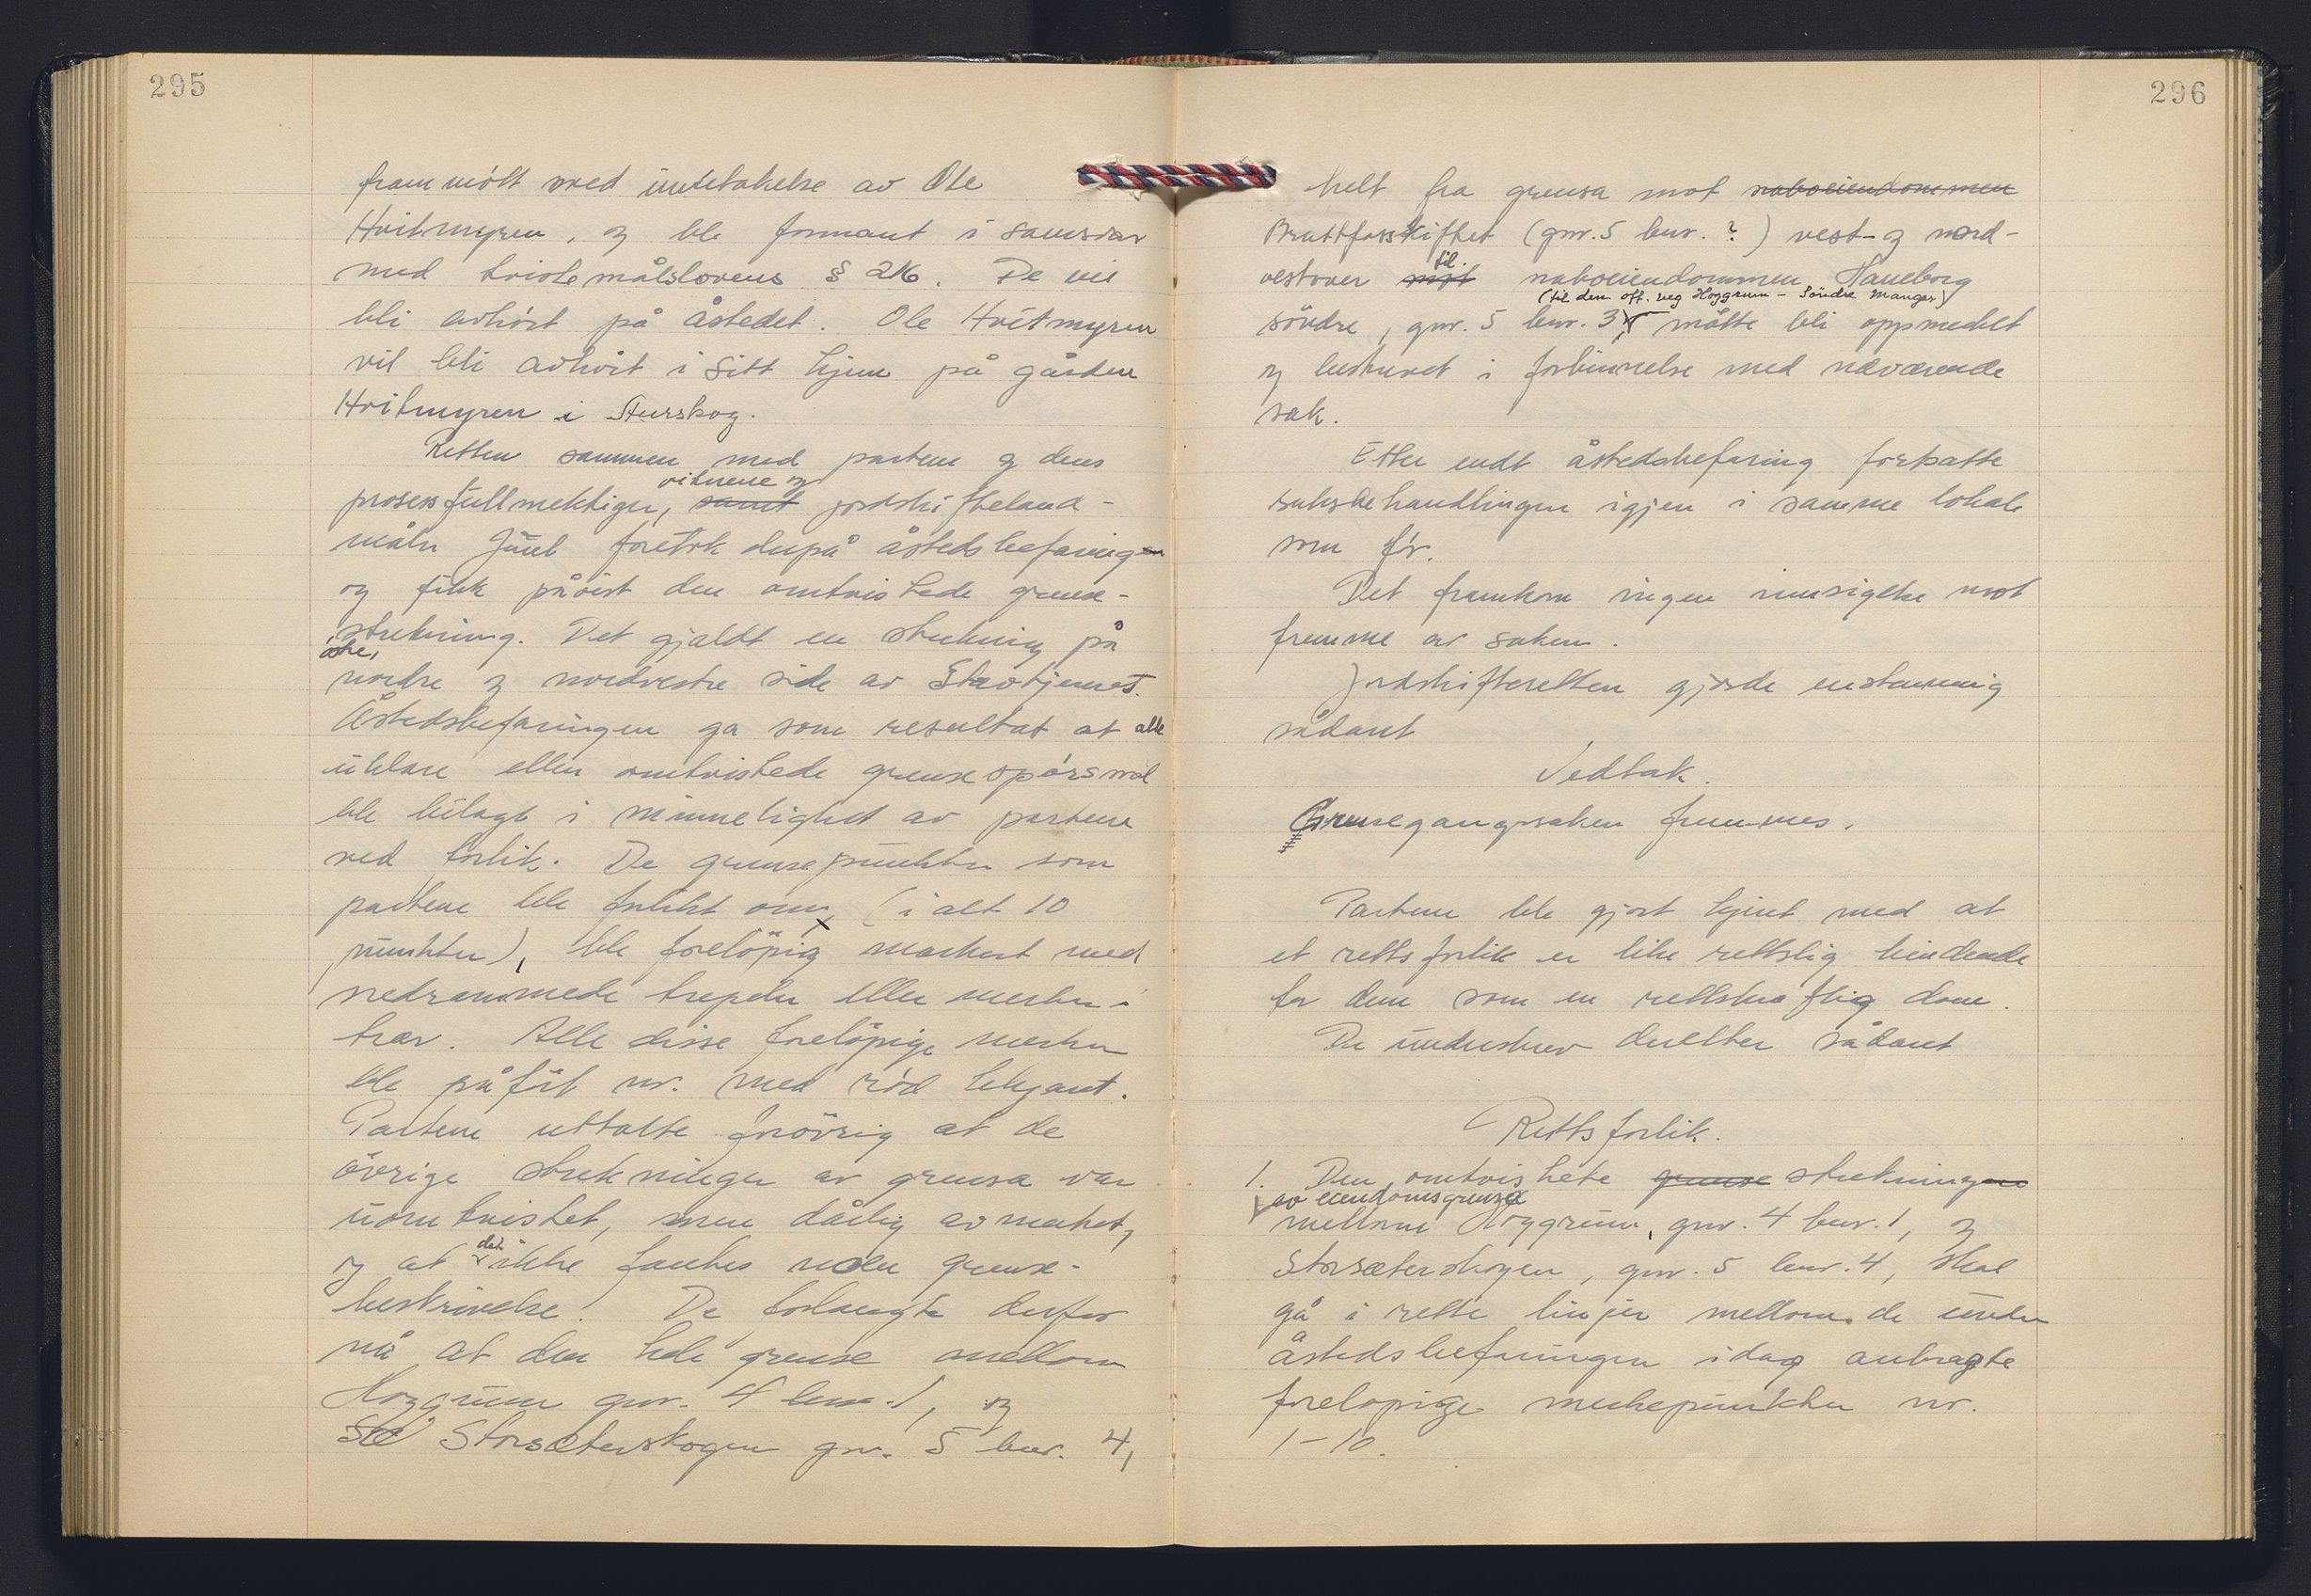 295
frammött med unntakelse av Ole
Hvitmyren, og ble formant i samsvar
med tvistemålslovens § 216. De vil
bli avhört på åstedet. Ole Hvitmyren
vil bli avhört i sitt hjem på gården
Hvitmyren i Aurskog.
Retten sammen med partene og deres
vitnene og
prosessfullmektiger, samt jordskifteland-
måler Juul foretok derpå åstedsbefaringen
og fikk påvist den omtvistede grense-
strekning. Det gjaldt en strekning på
östre,
nordre og nordvestre side av Stavtjernet.
Åstedsbefaringen ga som resultat at alle
uklare eller omtvistede grensespörsmål
ble bilagt i minnelighet av partene
ved forlik. De grensepunkter som
partene ble forlikt om, (i alt 10
punkter), ble forelöpig markert med
nedrammede trepeler eller merker i
trær. Alle disse forelöpige merker
ble påfört nr. med röd lekjant.
Partene uttalte forövrig at de
övrige strekninger av grensa var
uomtvistet, men dårlig avmerket,
det
og at ikke fantes noen grense-
beskrivelse. De forlangte derfor
nå at den hele grense mellom
Höggrum gnr. 4 bnr. 1, og
Sto Storsæterskogen gnr. 5 bnr. 4,
296
helt fra grensa mot naboeiendommen
Brattfosskiftet (gnr. 5 bnr. ?) vest- og nord-
til
vestover mot naboeiendommen Haneborg
(til den off. veg Höggrum - Söndre Mangen)
söndre, gnr. 5 bnr. 3, måtte bli oppmerket
og beskrevet i forbinnelse med nåværende
sak.
Etter endt åstedsbefaring fortsatte
saksbehandlingen igjen i samme lokale
som för.
Det framkom ingen innsigelse mot
fremme av saken.
Jordskifteretten gjorde enstemmig
sådant
Vedtak.
Grensegangssaken fremmes.
Partene ble gjort kjent med at
et rettsforlik er like rettslig bindende
for dem som en rettskraftig dom.
De underskrev deretter sådant
Rettsforlik.
1. Den omtvistete grense strekningen
av eiendomsgrensa
mellom Höggrum, gnr. 4 bnr. 1, og
Storsæterskogen, gnr. 5 bnr. 4, skal
gå i rette linjer mellom de under
åstedsbefaringen idag anbragte
forelöpige merkepunkter nr.
1-10.